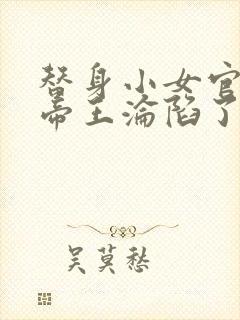 替身小女官
帝王淪陷了
吴莫愁